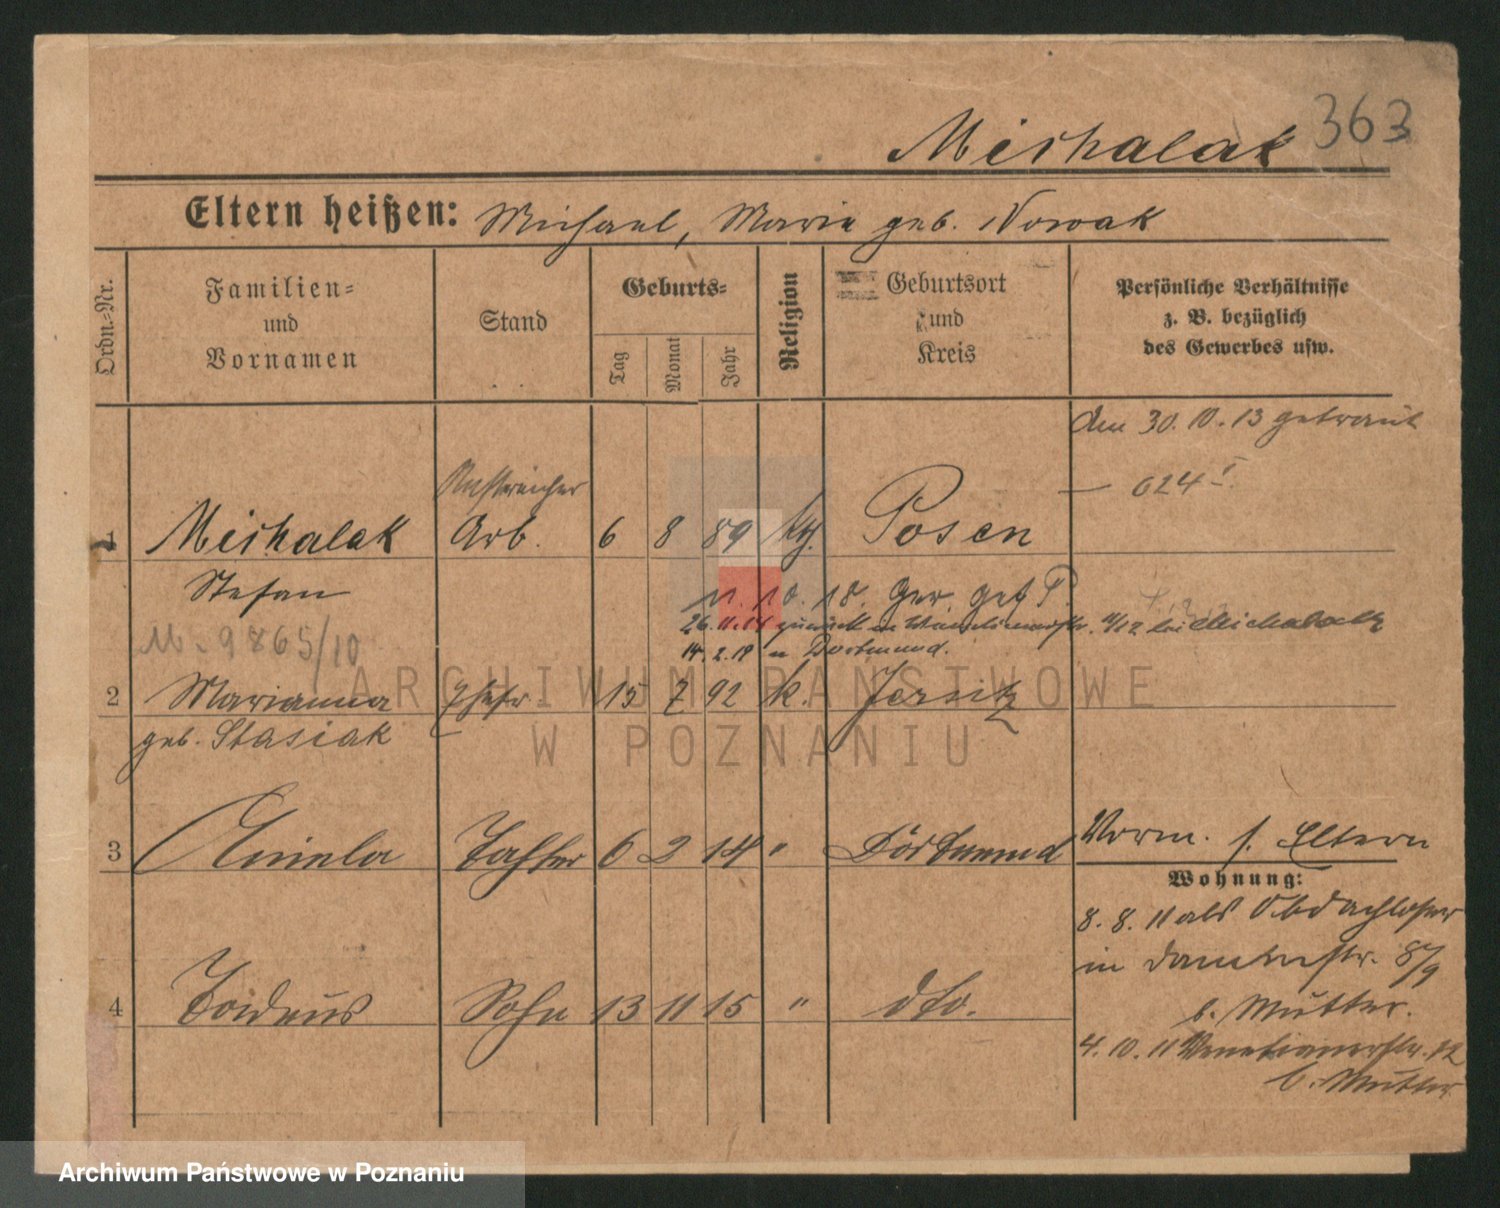 363
Michalak
Eltern heißen: Michael, Marie geb. Nowak
Ordn.-Nr.
Familien-
und
Vornamen
Stand
Geburts-
Tag
Monat
Jahr
Religion
Geburtsort
und
Kreis
Persönliche Verhältnisse
z. B. bezüglich
des Gewerbes usw.
Am 30. 10. 13 getraut
— 624 I.
Anstreicher
1 Michalak Arb. 6 8 89 kth. Posen
Stefan
11. 10. 18. Ger. Gef P.
26. 11. 14 zurück n 11/12 bei Michalak
14. 2. 19 n Dortmund.
M. 9865/10
2 Marianna Ehefr 15 7 92 k. Jersitz
geb. Stasiak
3 Aniela Tochter 6 2 14 " Dortmund
Vorm. s. Eltern
Wohnung:
8. 8. 11 als Obdachloser
in Dammstr. 8/9
b. Mutter.
4 Tadeus Sohn 13 11 15 " dto.
4. 10. 11 Venetianerstr. 12
b. Mutter
ARCHIWUM PAŃSTWOWE
W POZNANIU
Archiwum Państwowe w Poznaniu